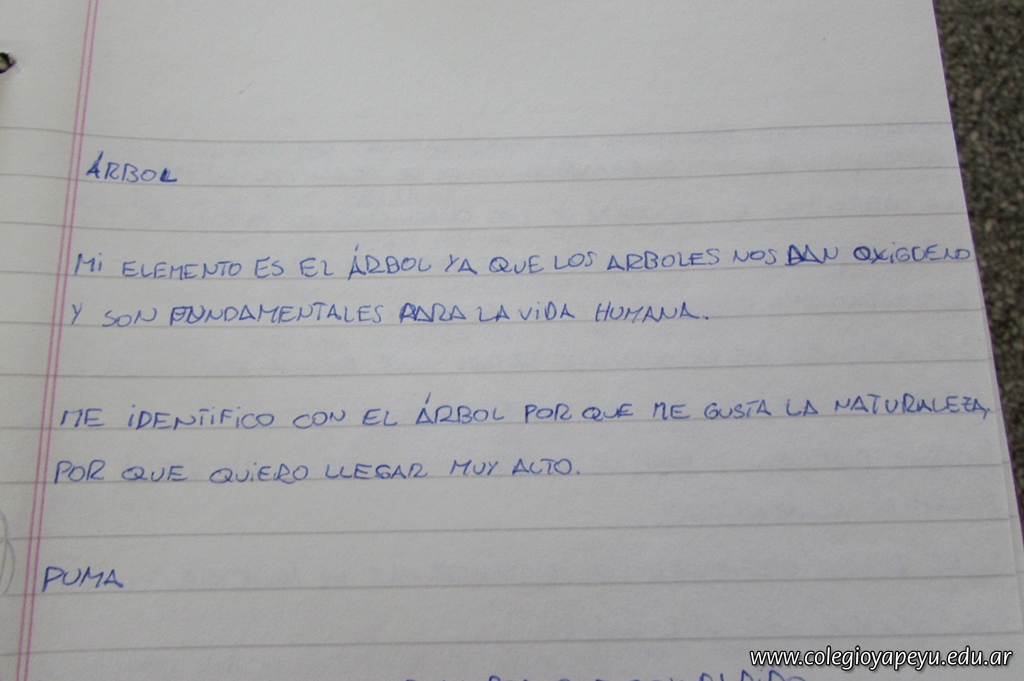 ÁRBOL
Mi ELEMENTO ES EL ÁRBOL YA QUE LOS ARBOLES NOS DAN OXIGDENO
Y SON FUNDAMENTALES PARA LA ViDA HUMANA.
ME iDENTiFiCO CON EL ÁRBOL POR QUE ME GUSTA LA NATURALEZA,
POR QUE QUiERO LLEGAR MUY ALTO.
PUMA
www.colegioyapeyu.edu.ar